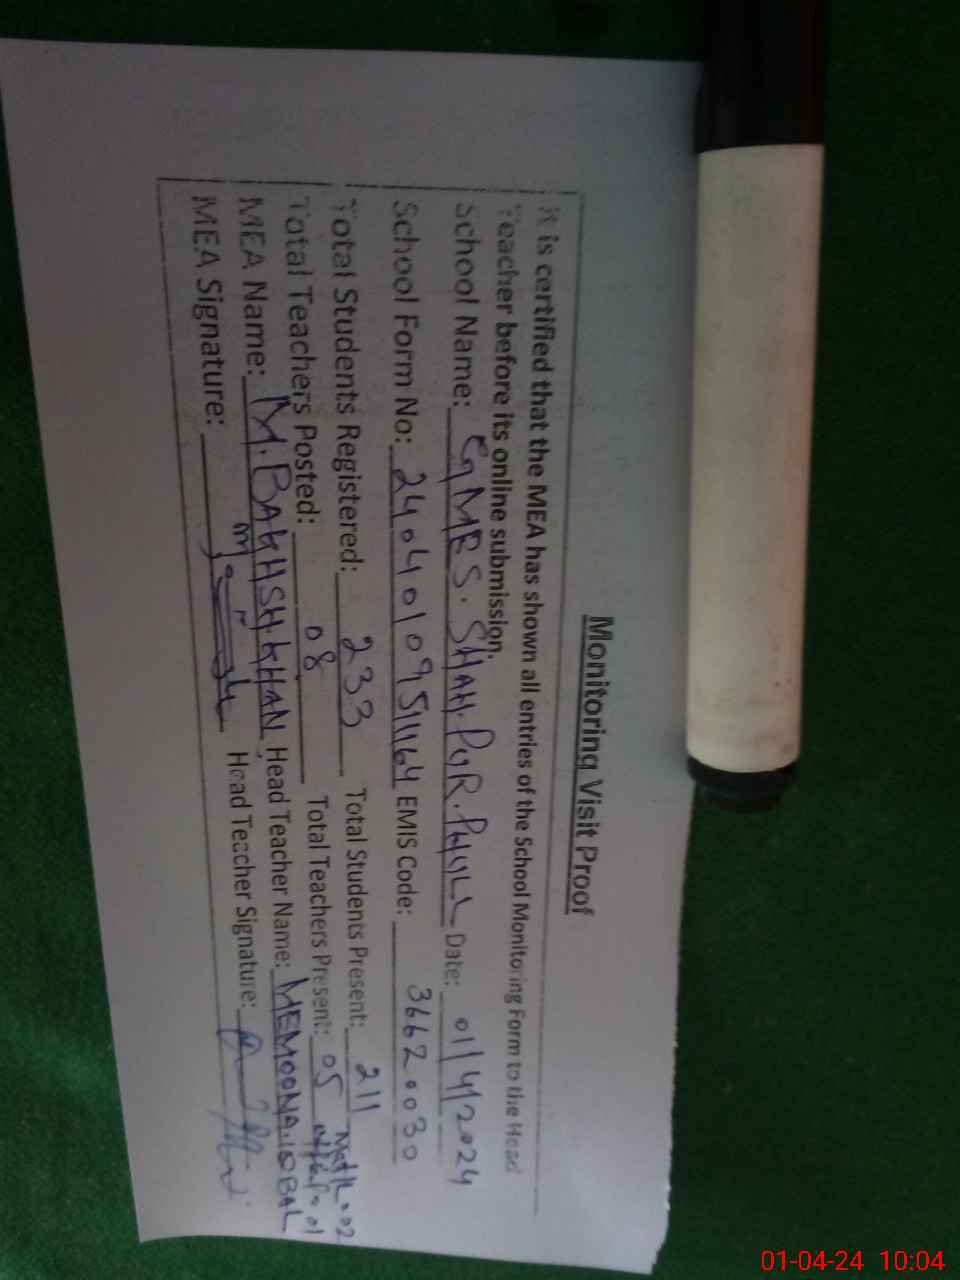 Monitoring Visit Proof
It is certified that the MEA has shown all entries of the School Monitoring Form to the Head
Teacher before its online submission.
School Name: GMBS. SHAH.PUR.PHULL Date: 01/4/2024
School Form No: 24040109511164 EMIS Code: 36620030
Total Students Registered: 233 Total Students Present: 211
Total Teachers Posted: 08 Total Teachers Present: 05 Mat/L.02
MEA Name: M.BAKHSH.KHAN Head Teacher Name: MEMOONA.IQBAL
MEA Signature: Head Teacher Signature:
01-04-24 10:04